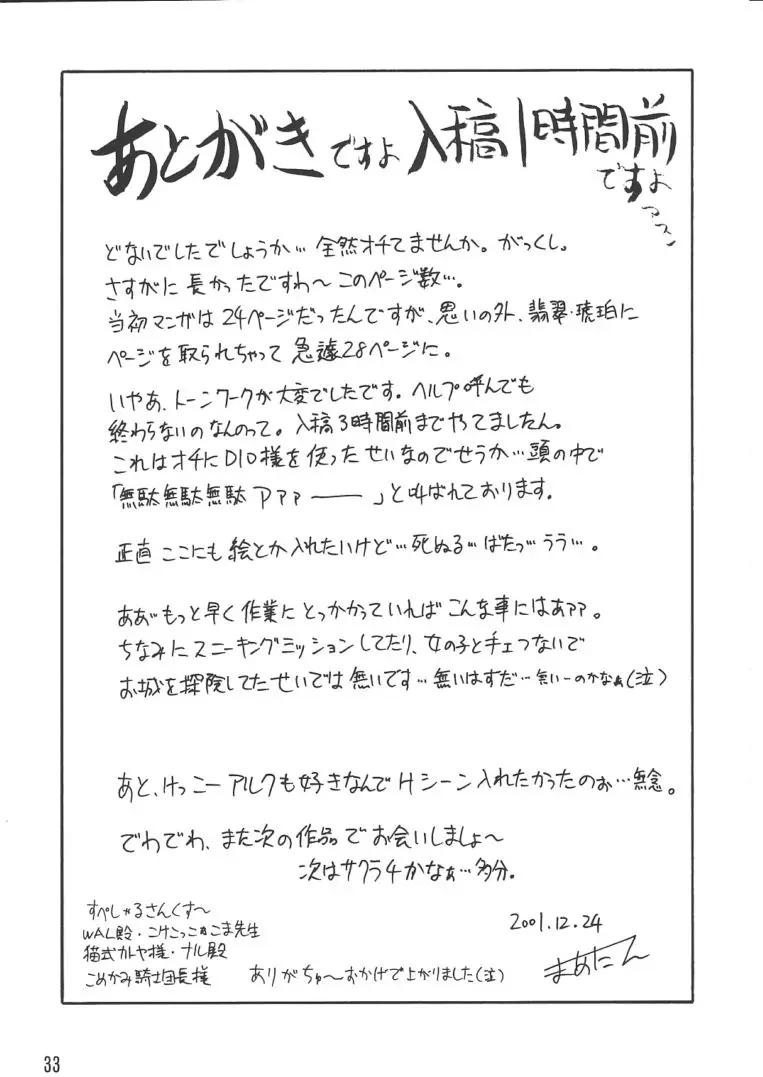 あとがきですよ 入稿1時間前
ですよ
どないでしたでしょうか… 全然オチてませんか。がっくし。
さすがに長かったですわ〜このページ数…。
当初マンガは24ページだったんですが、思いの外、翡翠・琥珀に
ページを取られちゃって急遽28ページに。
いやあ、トーンワークが大変でしたです。ヘルプ呼んでも
終わらないのなんのって。入稿3時間前までやてましたん。
これはオチにDIO様を使ったせいなのでせうか…頭の中で
「無駄無駄無駄アァァ――」と叫ばれております。
正直ここにも絵とか入れたいけど…死ぬる…ばたっ…うう…。
ああ…もっと早く作業にとっかかっていればこんな事にはあァァ。
ちなみにスニーキングミッションしてたり、女の子とチェつないで
お城を探険してたせいでは無いです…無いはずだ…無いーのかなぁ(泣)
あと、けっこーアルクも好きなんでHシーン入れたかったのぉ…無念。
でわでわ、また次の作品でお会いしましょ〜
次はサクラ4かなぁ…多分。
すぺしゃるさんくす〜
WAL殿・こけこっこぉこま先生
猫式カトヤ様・ナル殿
こめかみ騎士団長様 ありがちゅ〜おかげで上がりました(泣)
2001.12.24
まあたん
33